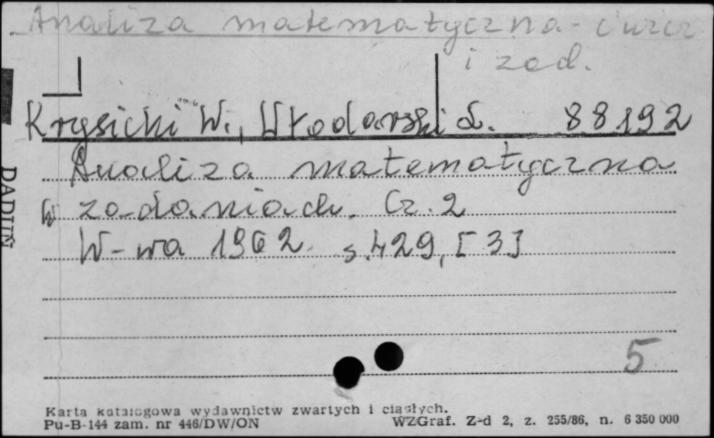 Analiza matematyczna - ćwicz
i zad.
Krysicki W., Włodarski L. 88192
Analiza matematyczna
w zadaniach. Cz. 2
W-wa 1962 s. 429, [3]
DADUŃ
5
Karta katalogowa wydawnictw zwartych i ciągłych.
Pu-B-144 zam. nr 446/DW/ON WZGraf. Z-d 2, z. 255/86, n. 6 350 000